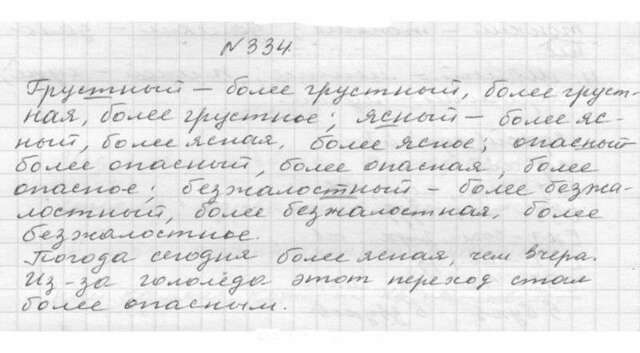 №334
Грустный — более грустный, более груст-
ная, более грустное; ясный — более яс-
ный, более ясная, более ясное; опасный
более опасный, более опасная, более
опасное; безжалостный — более безжа-
лостный, более безжалостная, более
безжалостное.
Погода сегодня более ясная, чем вчера.
Из-за гололёда этот переход стал
более опасным.